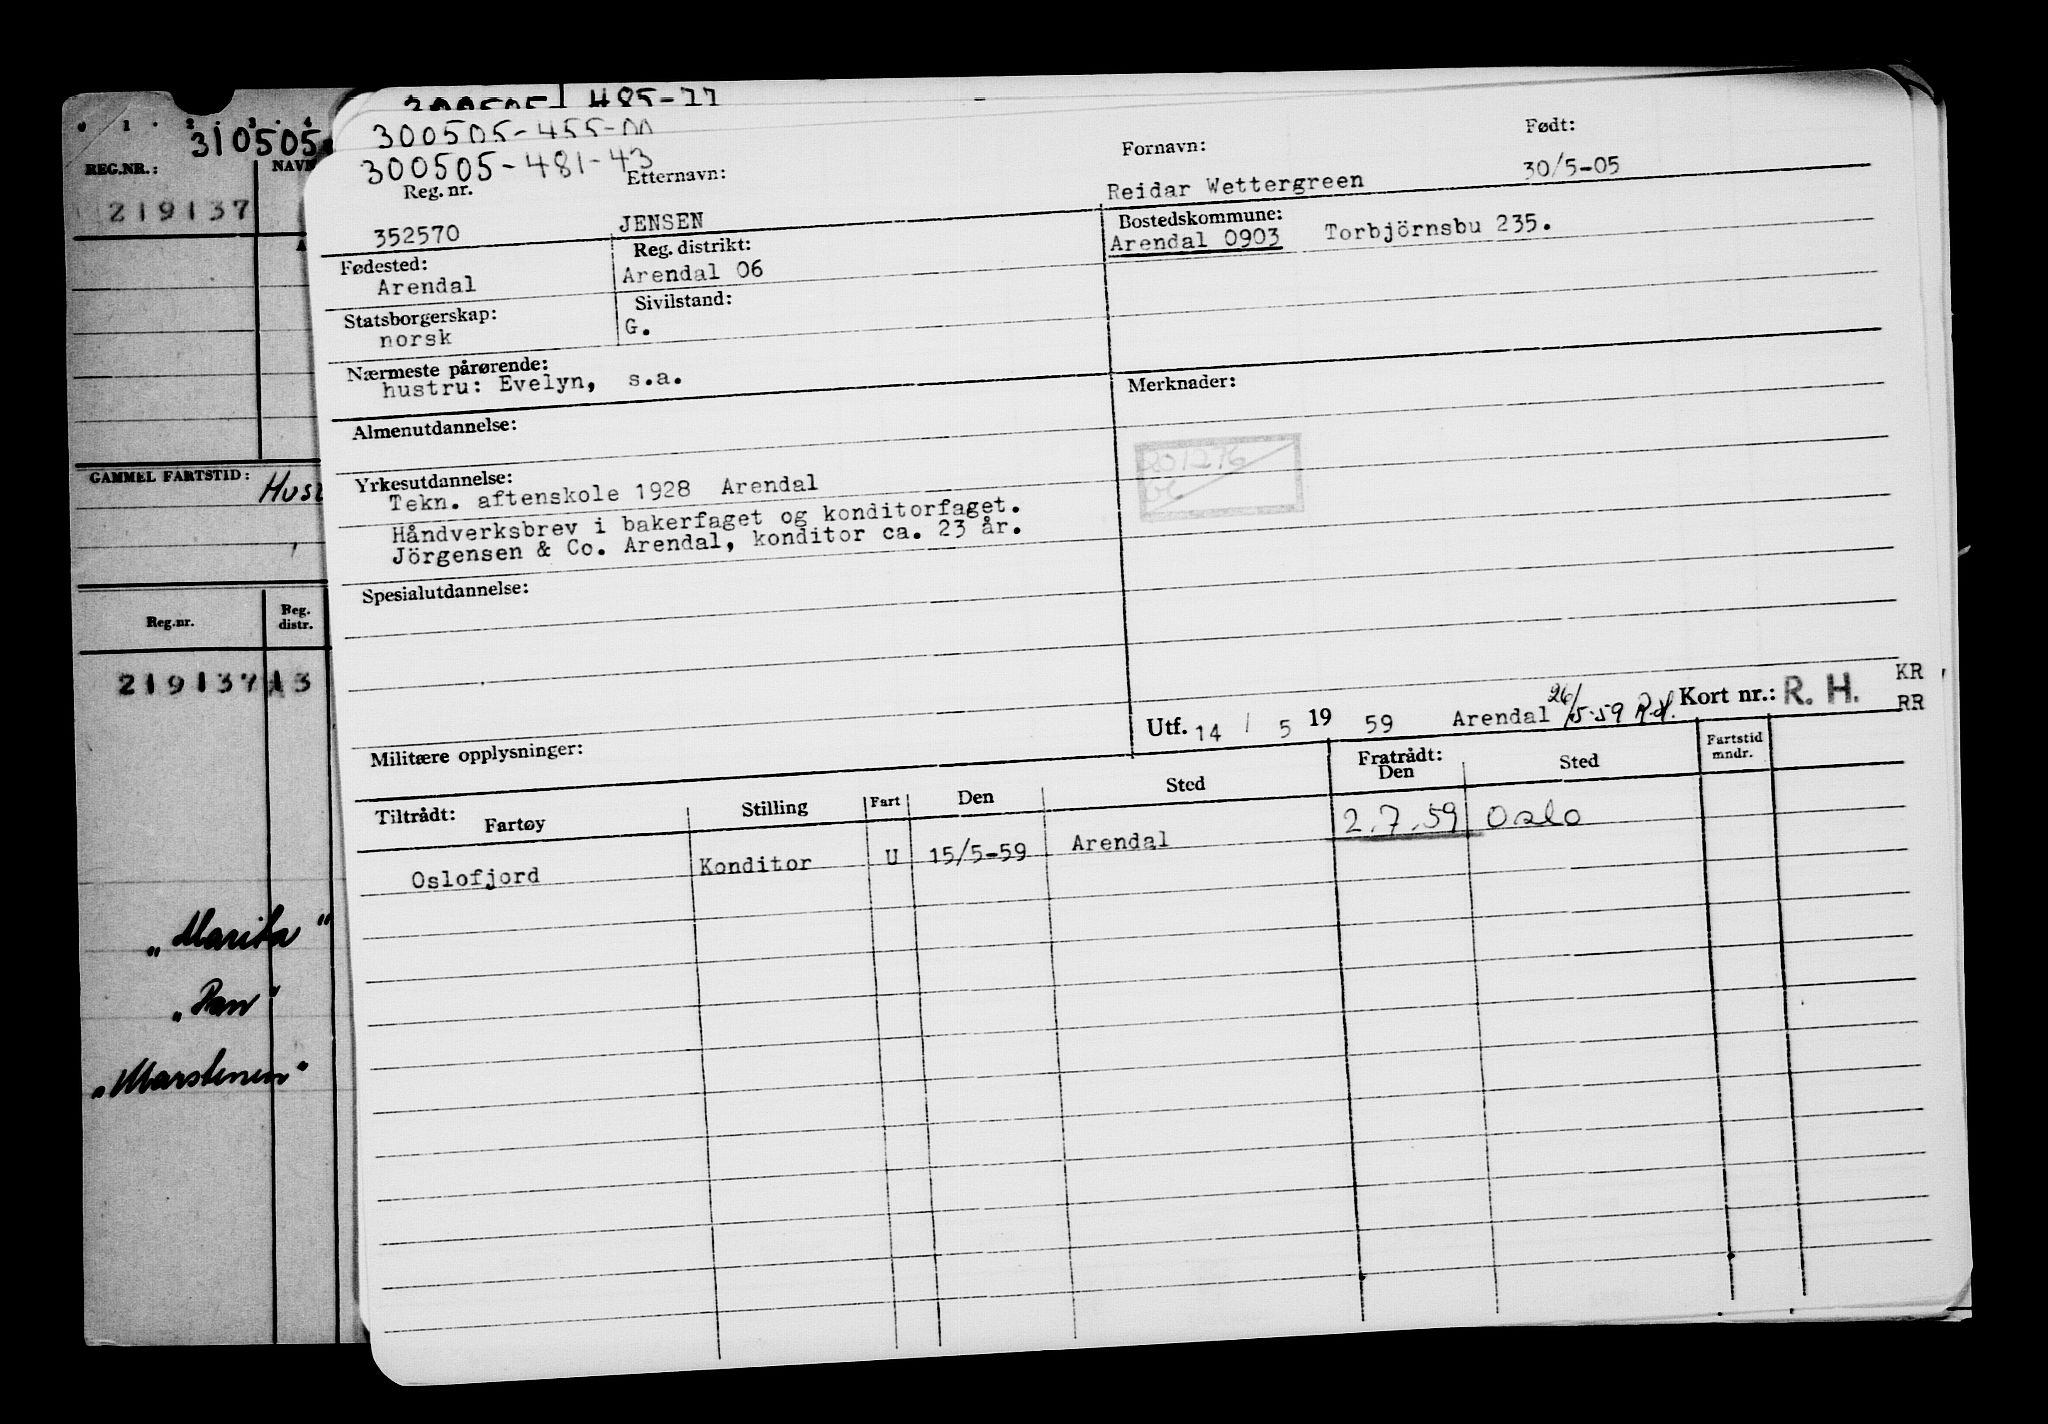 0 1 2 3 4
310505
REG.NR.: NAVN
219137
GAMMEL FARTSTID:
Reg.nr. Reg. distr.
219137 13
„Marita"
„Pan"
„Marstenen"
300505-455-00
300505-481-43
Reg. nr. Etternavn: Fornavn: Født:
352570 JENSEN Reidar Wettergreen 30/5-05
Fødested: Reg. distrikt: Bostedskommune:
Arendal Arendal 06 Arendal 0903 Torbjörnsbu 235.
Statsborgerskap: Sivilstand:
norsk G.
Nærmeste pårørende:
hustru: Evelyn, s.a.
Merknader:
Almenutdannelse:
201276
Yrkesutdannelse:
Tekn. aftenskole 1928 Arendal
Håndverksbrev i bakerfaget og konditorfaget.
Jörgensen & Co. Arendal, konditor ca. 23 år.
Spesialutdannelse:
Militære opplysninger:
Utf. 14 / 5 19 59 Arendal 26/5-59 R.H. Kort nr.: R. H. KR
RR
Tiltrådt: Fartøy Stilling Fart Den Sted Fratrådt: Den Sted Fartstid mndr.
Oslofjord Konditor U 15/5-59 Arendal 2.7.59 Oslo